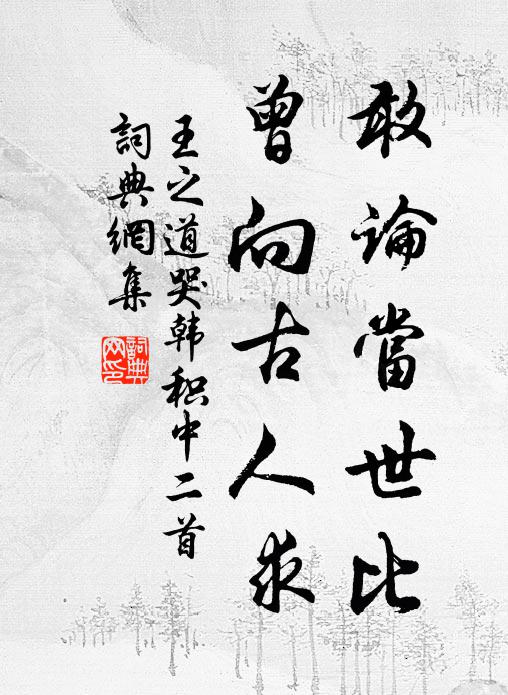 敢論當世比
曾向古人求
王之道哭韩积中二首
詞典網集
詞典網印